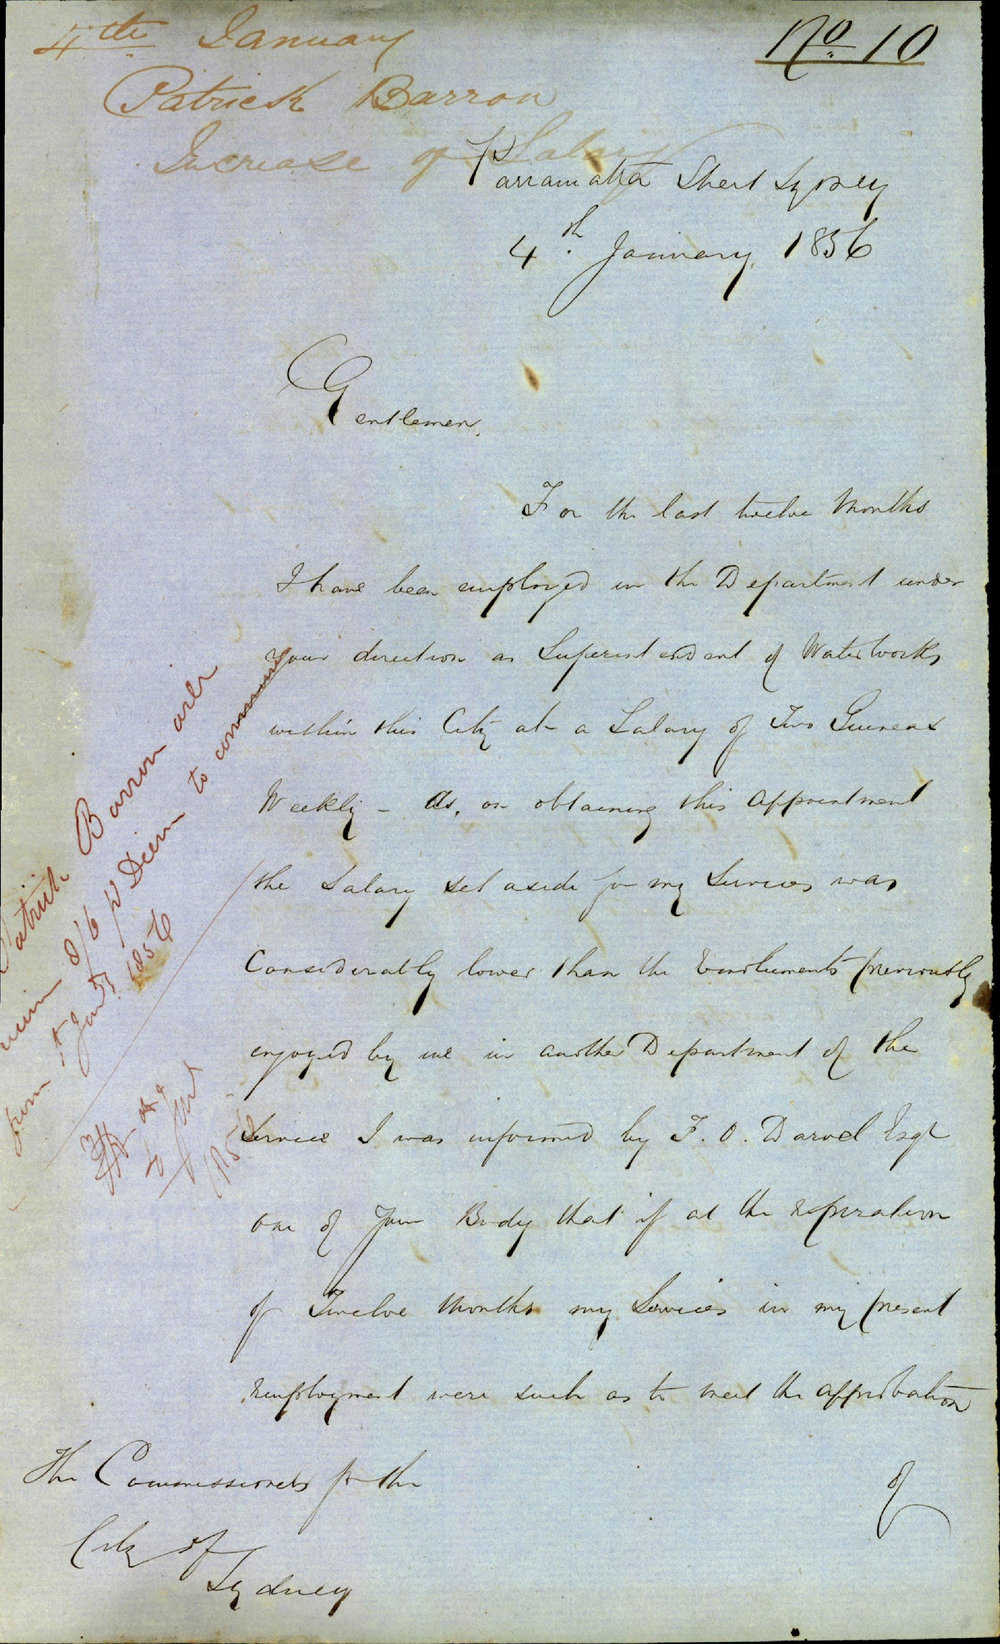 4th January
Patrick Barron
Increase of Salary
No. 10
Parramatta Street Sydney
4th. January. 1856
Gentlemen,
For the last twelve Months
I have been employed in the Department under
your direction as Superintendent of Water Works
within this City at a Salary of Two Guineas
Weekly – As, on obtaining this appointment
the Salary set aside for my Services was
Considerably lower than the Emoluments previously
enjoyed by me in another Department of the
Service I was informed by F. O. Darvall Esqr
one of your Body that if at the expiration
of Twelve Months my Services in my present
employment were such as to meet the approbation
of
The Commissioners for the
City of
Sydney
Patrick Barron will
8/6 pr Diem to commence
from 1st Jany 1856